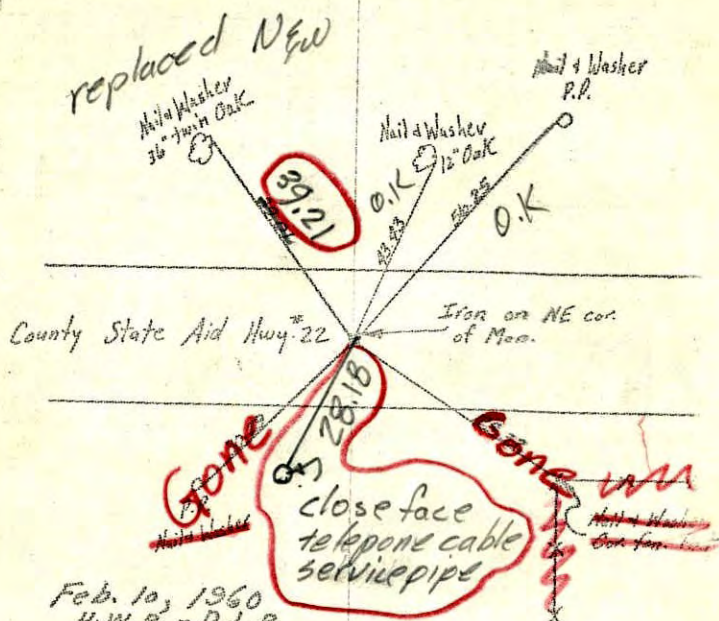 replaced New
Nail & Washer
36" twin Oak
Nail & Washer
12" Oak
Nail & Washer
P.P.
39.21
O.K
43.43
56.25
O.K
County State Aid Hwy. #22
Iron on NE cor.
of Mon.
28.18
Gone
Gone
Nail & Washer
Nail & Wash
Cor. fen.
close face
telepone cable
servicepipe
Feb. 10, 1960